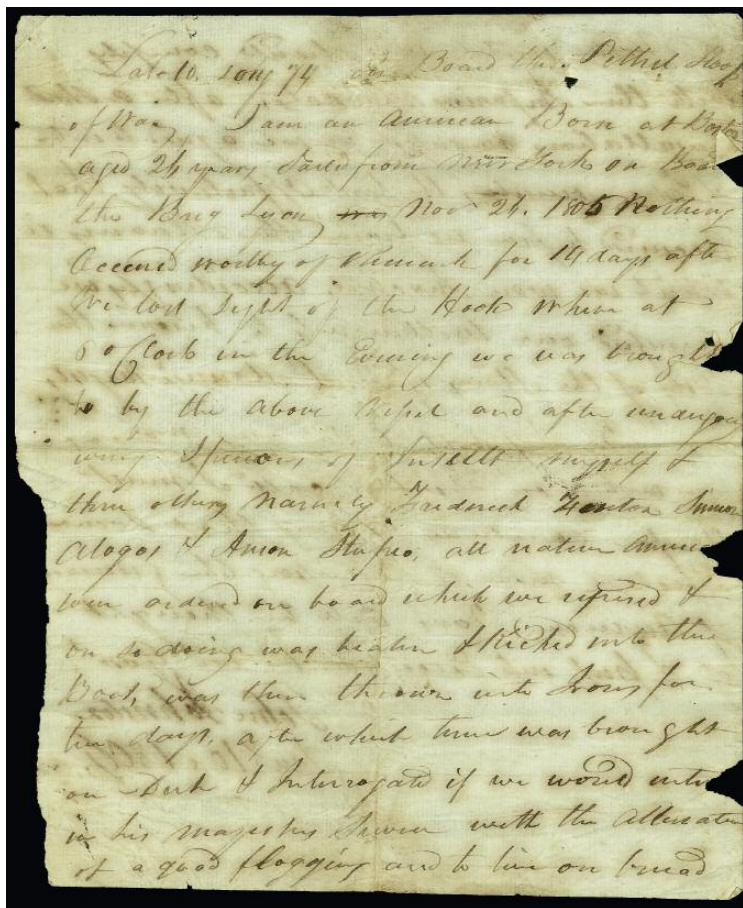 Lat 10. Long 74 on Board the Pethel Sloop
of War, I am an American Born at Boston
aged 24 years Sailed from New York on Boa
the Brig Lyon, Nov 24. 1805 Nothing
Occured worthy of Remark for 14 days afte
We lost Sight of the Hook When at
6 oClock in the Evening we was brought
to by the above Vessel and after undergo
every Species of Insult myself &
three others Namely Frederick Simeon
& Anson all native Americ
were ordered on board which we refused &
on so doing was beaten & kicked into the
Boat, was then thrown into Irons for
ten days, after which time was brought
on Deck & Interrogated if we would enter
in his majestys Service with the
of a good flogging and to live on bread